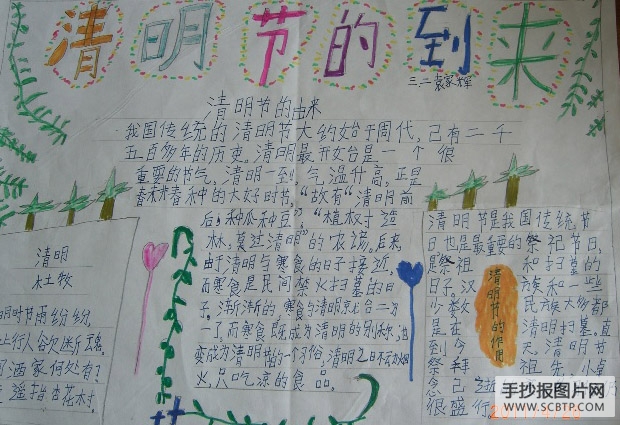 清明节的到来
三.二 袁家辉
清明节的由来
我国传统的清明节大约始于周代,已有二千
五百多年的历史。清明最开始是一个很
重要的节气,清明一到,气温升高,正是
春耕春种的大好时节,故有"清明前
后,种瓜种豆","植树造
林,莫过清明"的农谚。后来,
由于清明与寒食的日子接近,
而寒食是民间禁火扫墓的日
子,渐渐的,寒食与清明就合二为
一了,而寒食既成为清明的别称,也
变成为清明时的一个习俗,清明之日不动烟
火,只吃凉的食品。
清明
杜牧
明时节雨纷纷,
上行人欲断魂。
酒家何处有?
遥指杏花村。
清明节是我国传统节
日也是最重要的祭祀节日,
是祭祖和扫墓的
日子。汉族和一些
少数民族大都
是在清明扫墓。直
到今天,清明节
祭拜祖先,
念已
很盛行。
清明节的作用
手抄报图片网
WWW.SCBTP.COM